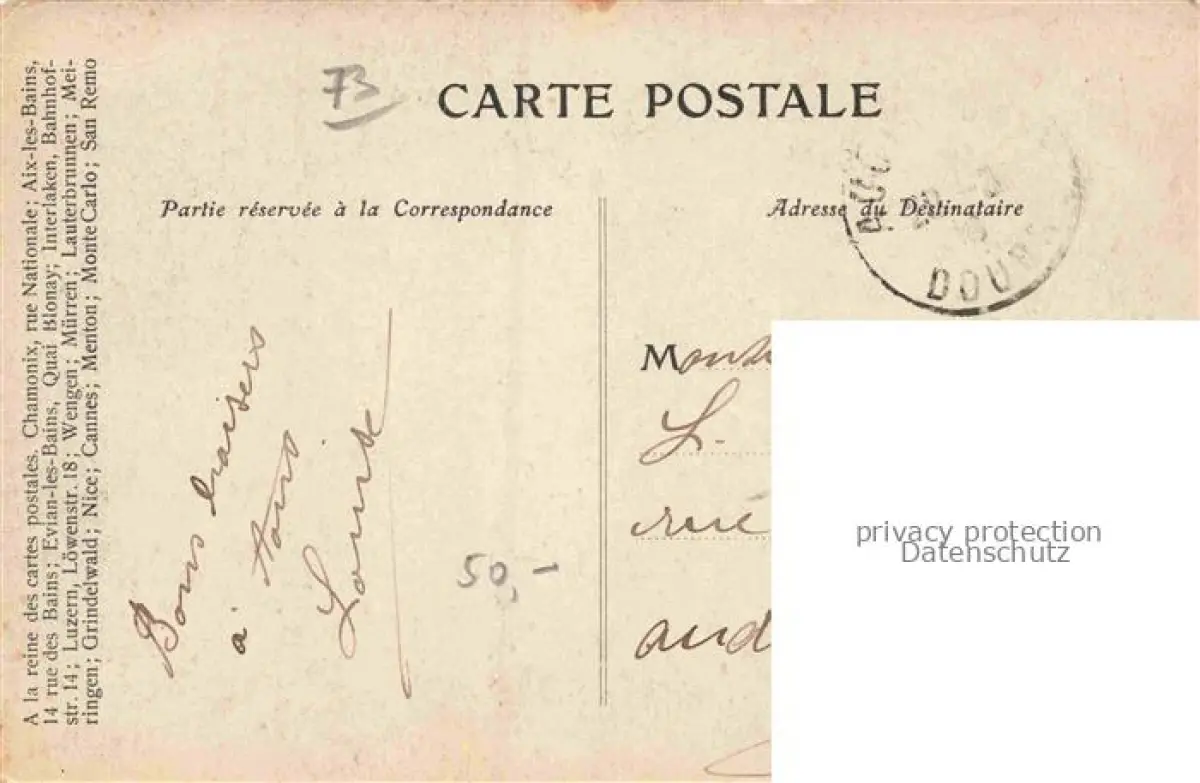 A la reine des cartes postales, Chamonix, rue Nationale; Aix-les-Bains,
14 rue des Bains; Evian-les-Bains, Quai Blonay; Interlaken, Bahnhof-
str. 14; Luzern, Löwenstr. 18; Wengen; Mürren; Lauterbrunnen; Mei-
ringen; Grindelwald; Nice; Cannes; Menton; Monte Carlo; San Remo
73
CARTE POSTALE
Partie réservée à la Correspondance
Adresse du Destinataire
DOU
Bons baisers
à tous
Louise
50,-
M
L.
rue
aud
privacy protection
Datenschutz